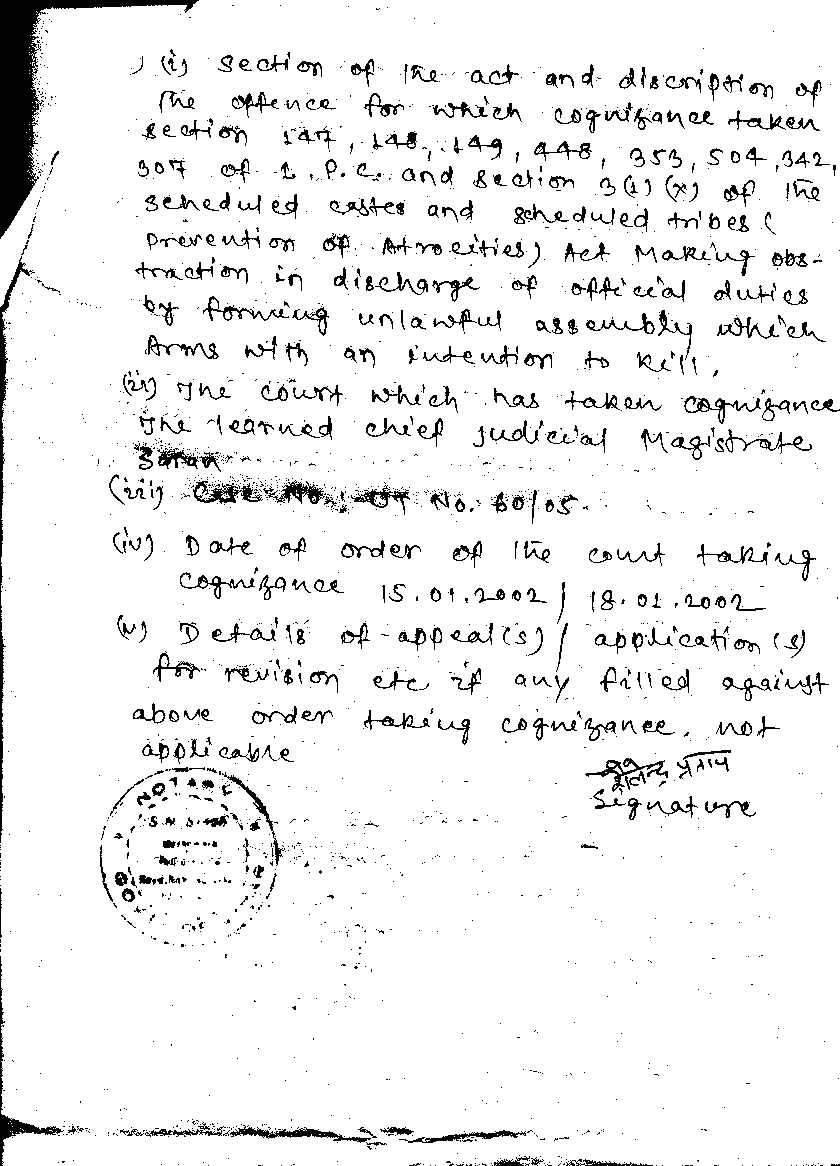 (i) Section of the act and discription of
The offence for which cognizance taken
section 147, 148, 149, 448, 353, 504, 342,
307 of I.P.C. and section 3(i)(x) of the
scheduled castes and scheduled tribes (
prevention of Atrocities) Act Making obs-
traction in discharge of official duties
by forming unlawful assembly which
Arms with an intention to kill.
(ii) The court which has taken cognizance
The learned chief judicial Magistrate
Saran
(iii) Case No.:- GT No. 60/05.
(iv) Date of order of the court taking
cognizance 15.01.2002 / 18.01.2002
(v) Details of appeal(s) / application(s)
for revision etc if any filled against
above order taking cognizance. not
applicable
शैलेन्द्र प्रताप
Signature
NOTARY
S.N. Singh